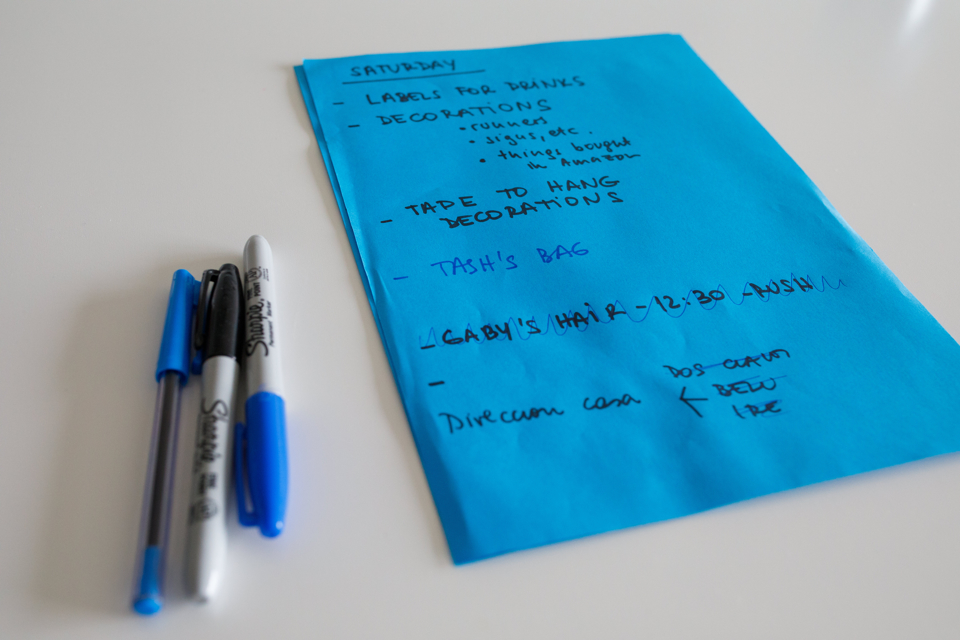 SATURDAY
- LABELS FOR DRINKS
- DECORATIONS
• runners
• signs, etc.
• things bought
in Amazon
- TAPE TO HANG
DECORATIONS
- TASH'S BAG
- GABY'S HAIR - 12:30 - RUSH
-
Direccion casa
DOS CLAUS
BELU
IRE
Sharpie
Sharpie